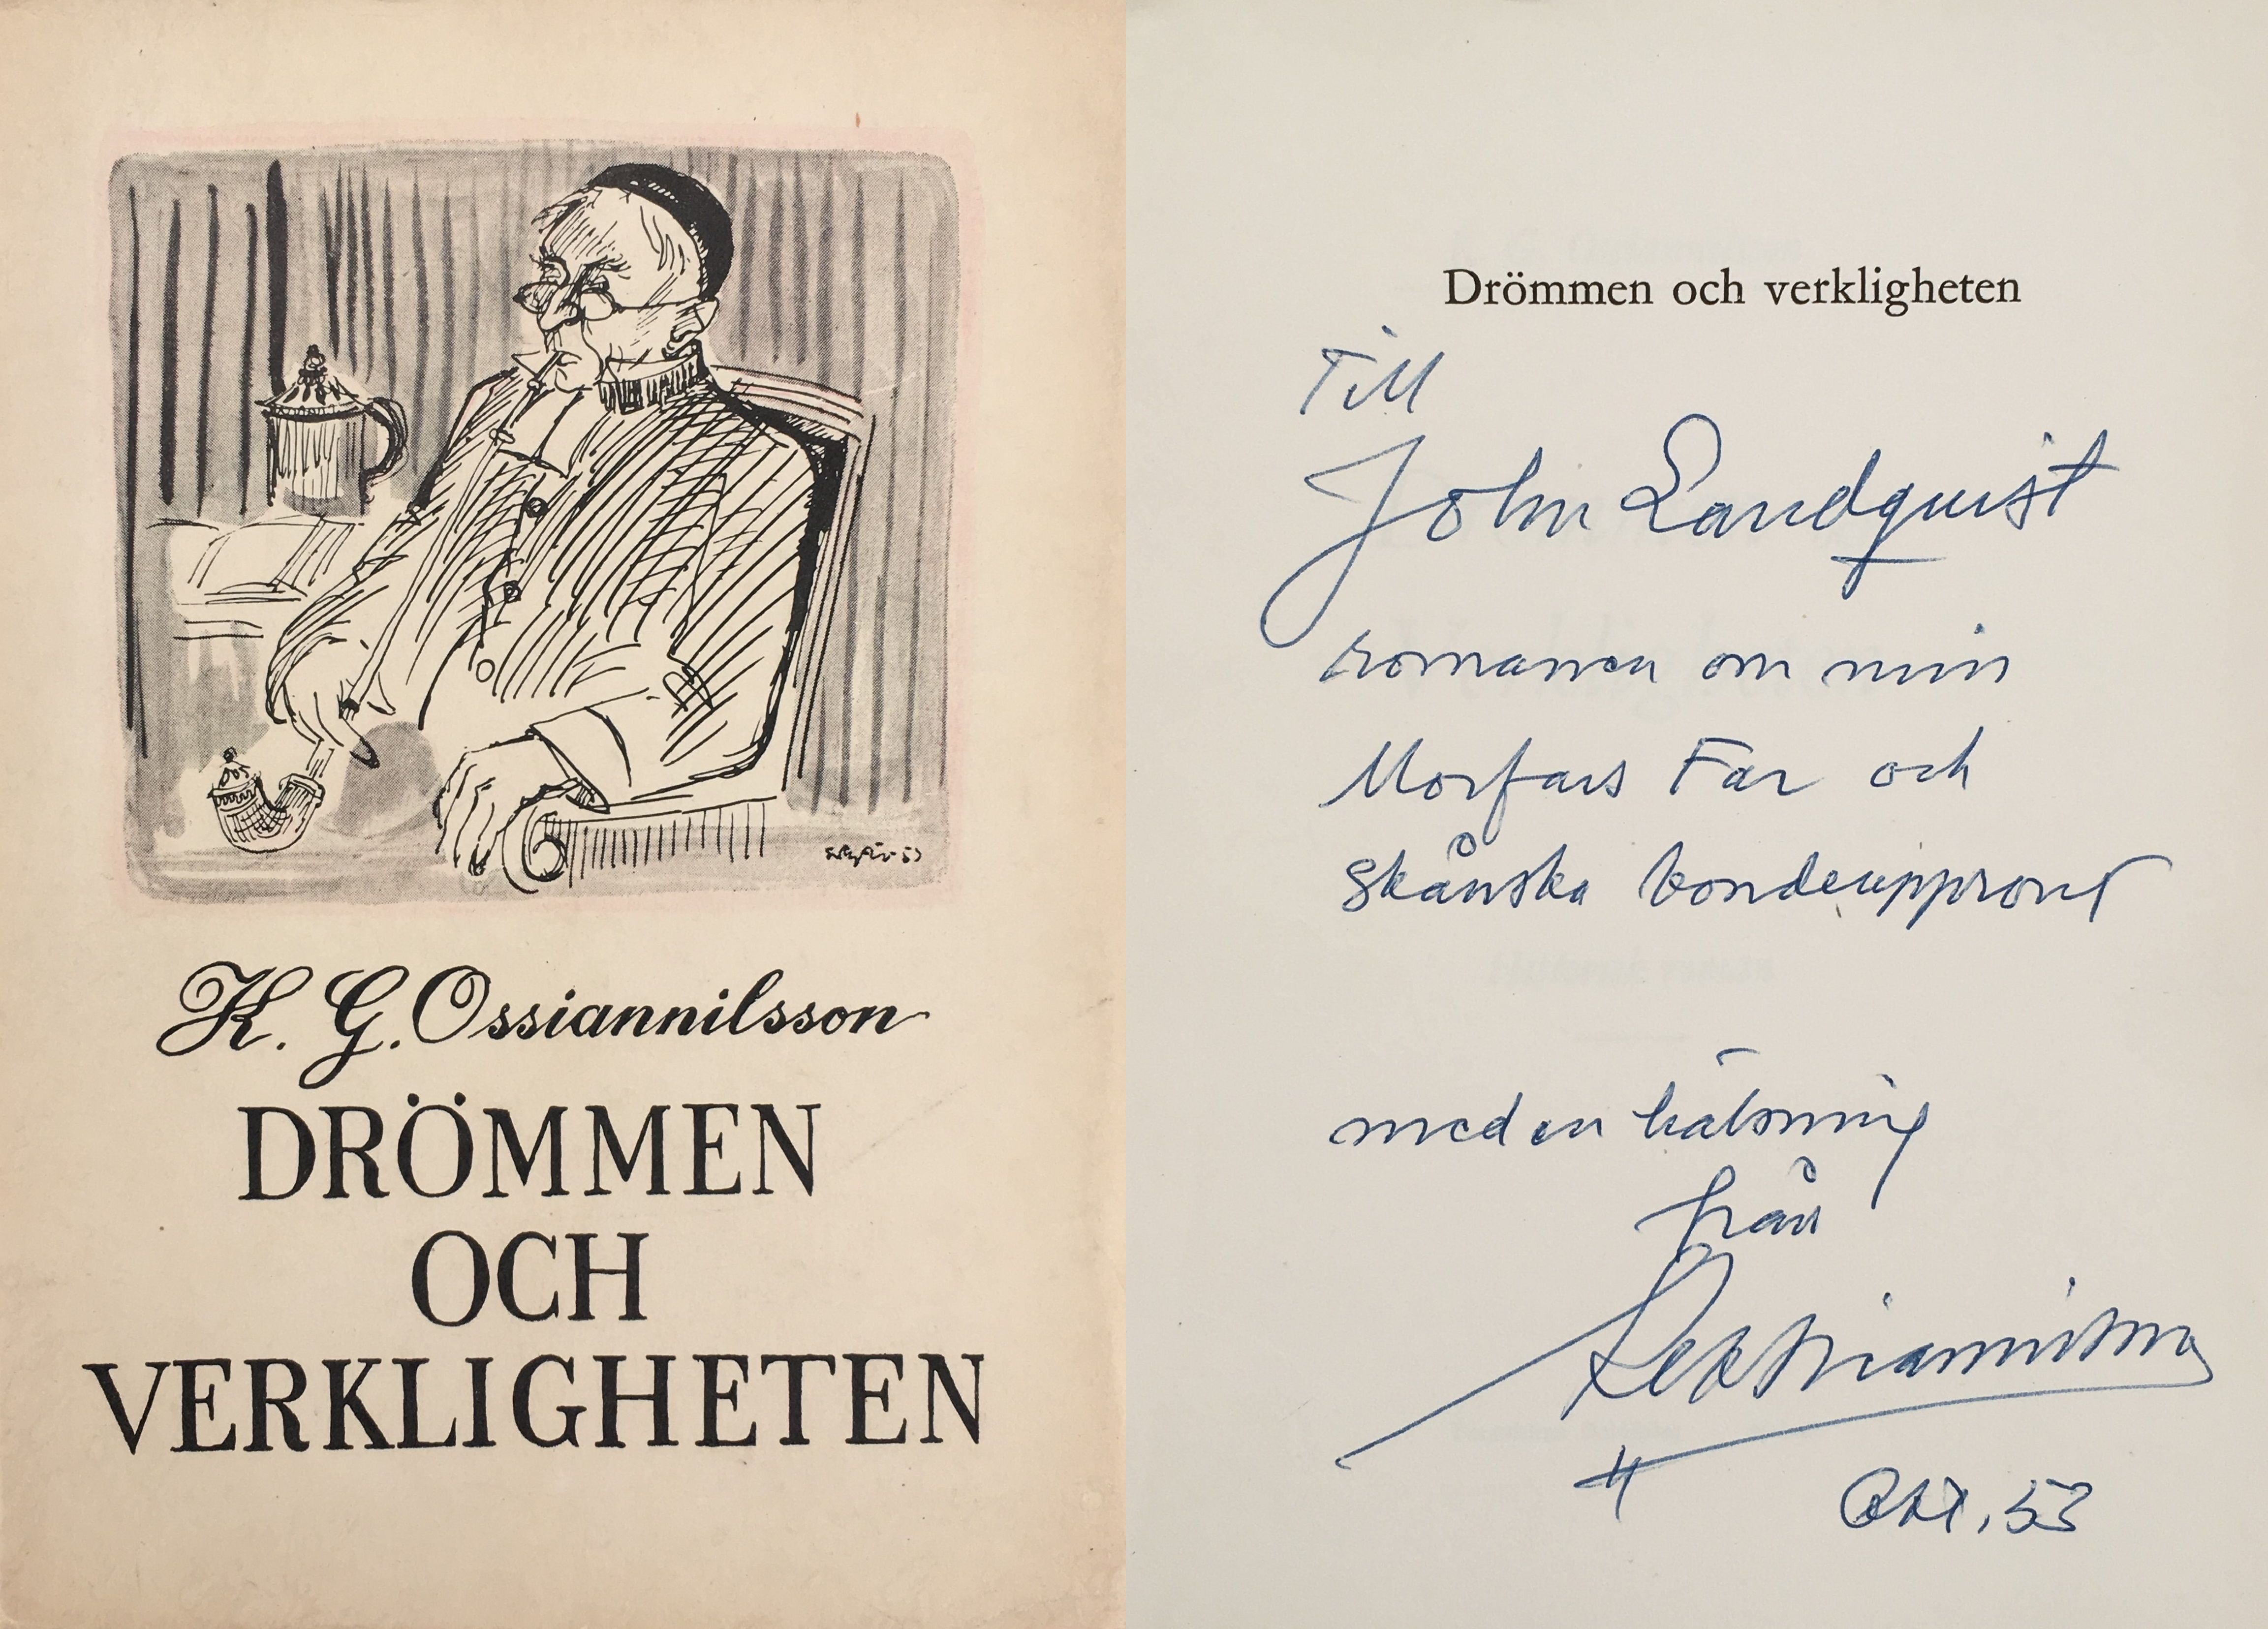 K. G. Ossiannilsson
DRÖMMEN
OCH
VERKLIGHETEN
Drömmen och verkligheten
Till
John Landquist
romanen om min
Morfars Far och
Skånska bondeupproret
med en hälsning
från
Ossiannilsson
Okt. 53